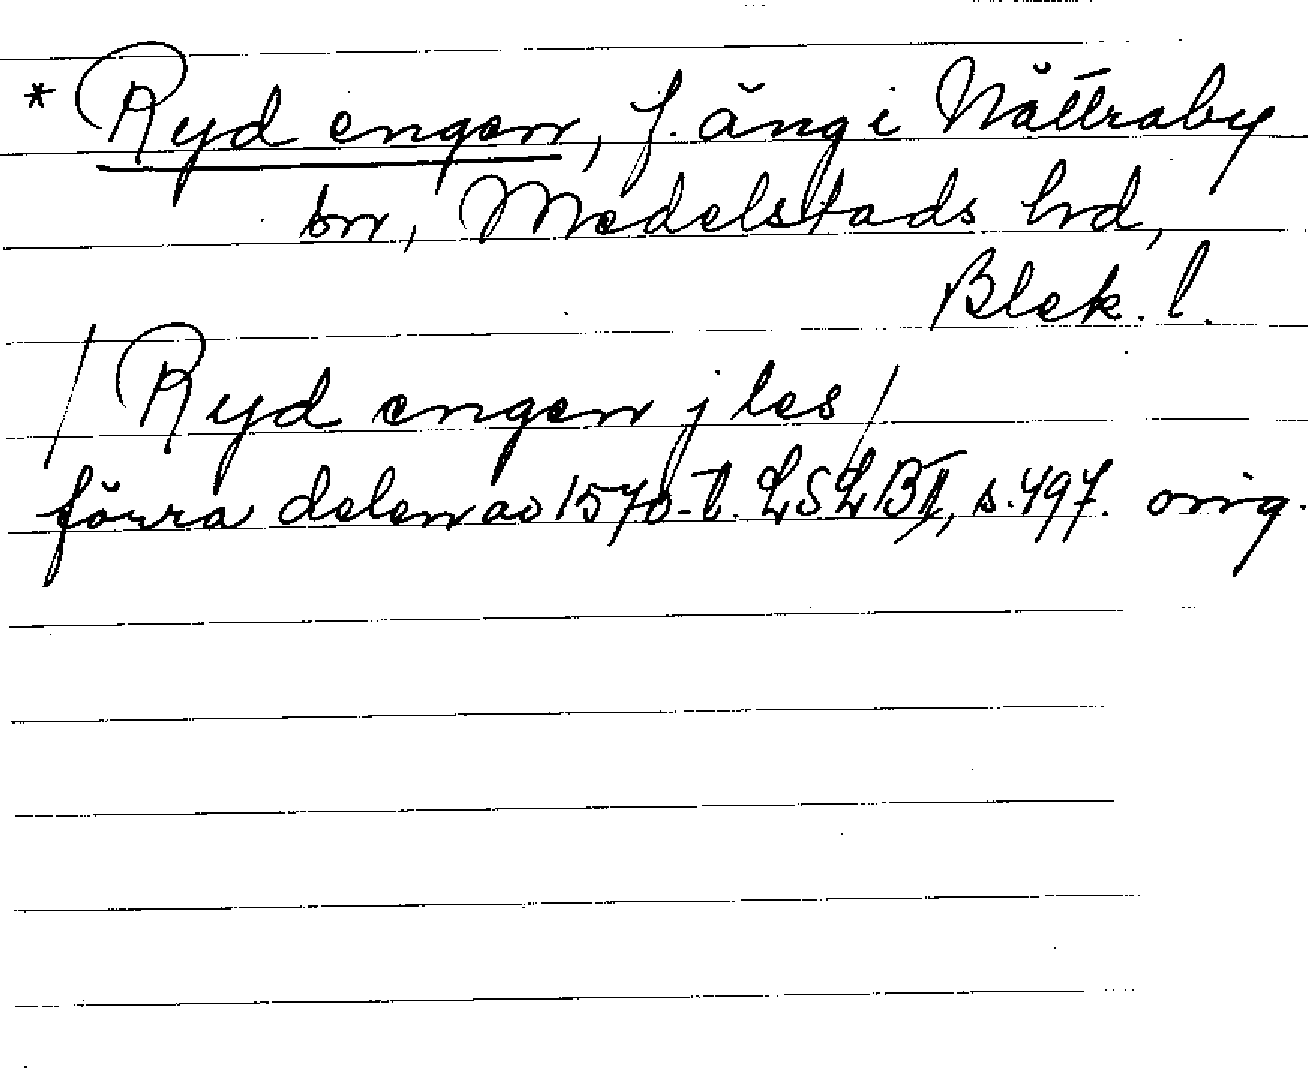 * Ryd engen, f. äng i Nättraby
sn, Medelstads hd,
Blek. l.
/Ryd engen j les/
förra delen av 1570-t. LSLB II, s. 497. orig.